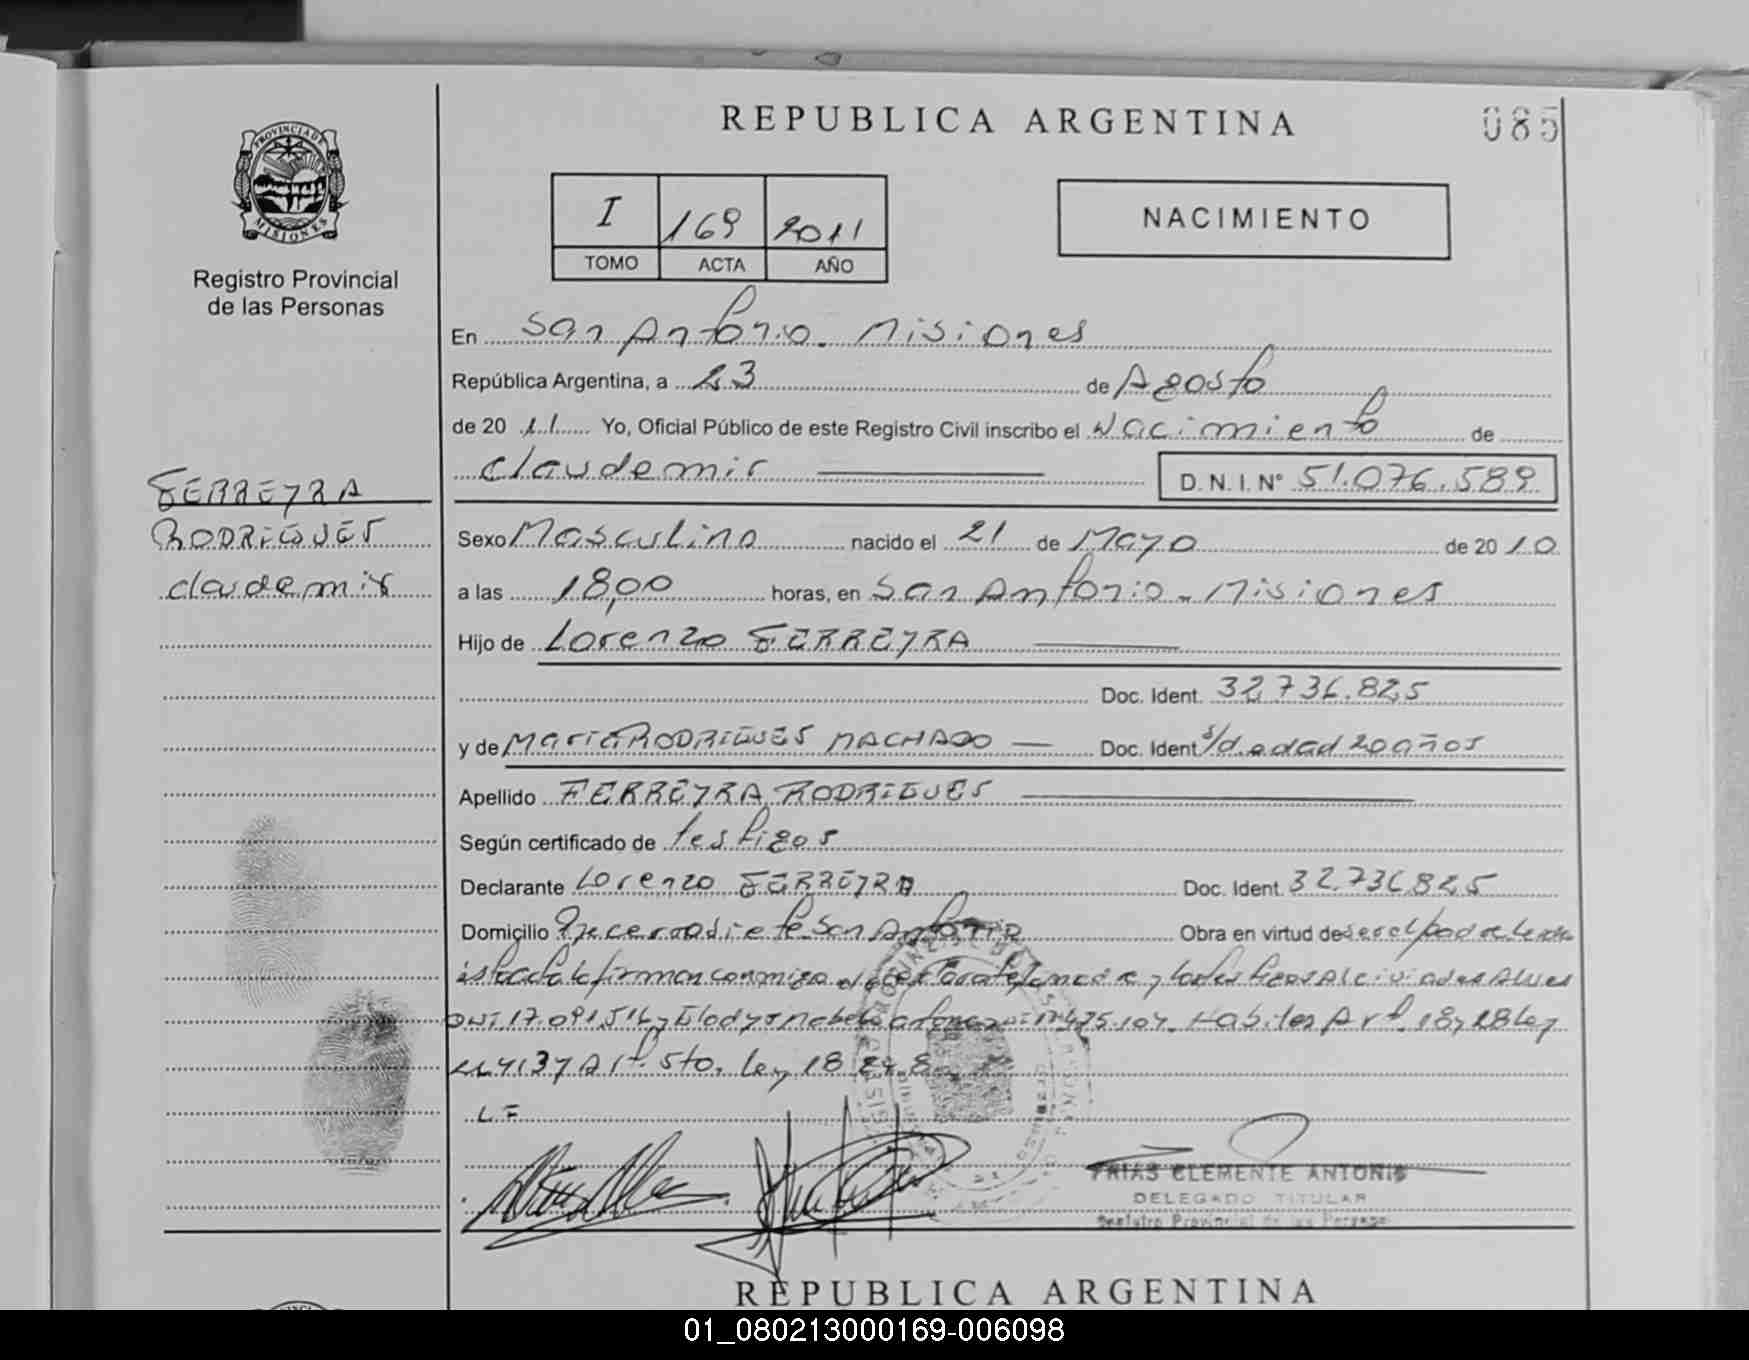 REPUBLICA ARGENTINA
085
PROVINCIA DE
MISIONES
Registro Provincial
de las Personas
I 169 2011
TOMO ACTA AÑO
NACIMIENTO
En San Antonio. Misiones
República Argentina, a 23 de Agosto
de 20 11 Yo, Oficial Público de este Registro Civil inscribo el Nacimiento de
Claudemir
D. N. I. N° 51.076.589
FERREYRA
RODRIGUES
Claudemir
Sexo Masculino nacido el 21 de Mayo de 20 10
a las 18,00 horas, en San Antonio - Misiones
Hijo de Lorenzo FERREYRA
Doc. Ident. 32.736.825
y de Maria RODRIGUES MACHADO Doc. Ident s/d. edad 20 años
Apellido FERREYRA RODRIGUES
Según certificado de testigos
Declarante Lorenzo FERREYRA Doc. Ident. 32.736.825
Domicilio San Antonio Obra en virtud de ser el padre
firman conmigo
DNI 17.091.516 y 475.104. Habiles Art. 18 y 28 Ley
y Art. 5to. Ley 18.248
LF
FRIAS CLEMENTE ANTONIO
DELEGADO TITULAR
Registro Provincial de las Personas
REPUBLICA ARGENTINA
01_080213000169-006098